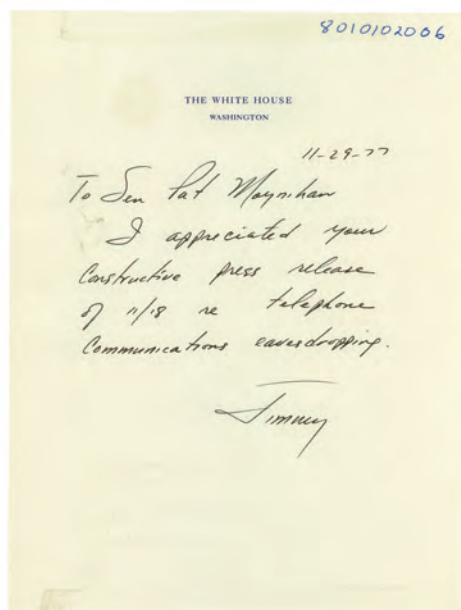 8010102006
THE WHITE HOUSE
WASHINGTON
11-29-77
To Sen Pat Moynihan
I appreciated your
constructive press release
of 11/18 re telephone
communications eavesdropping.
Jimmy